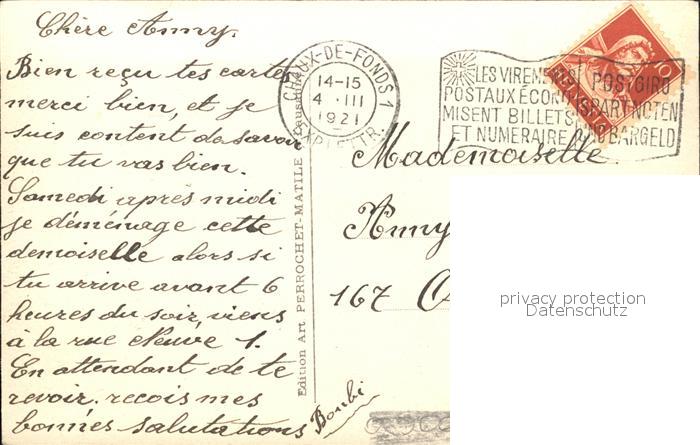 Chère Anny.
Bien reçu tes cartes
merci bien, et je
suis content de savoir
que tu vas bien.
Samedi après midi
je déménage cette
demoiselle alors si
tu arrive avant 6
heures du soir, viens
à la rue Neuve 1.
En attendant de te
revoir. recois mes
bonnes salutations
Boubi
Edition Art PERROCHET-MATILE
CHAUX-DE-FONDS 1
14-15
4 III
1921
EXP. LETTR.
LES VIREMENTS
POSTAUX ÉCONO
MISENT BILLETS
ET NUMERAIRE
POSTGIRO
SPART NOTEN
UND BARGELD
Mademoiselle
Anny
167
privacy protection
Datenschutz